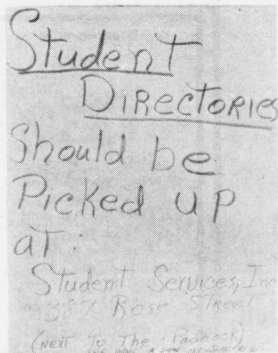 Student
Directories
Should be
Picked up
at:
Student Services, Inc
387 Rose Street
(Next To The Paddock)